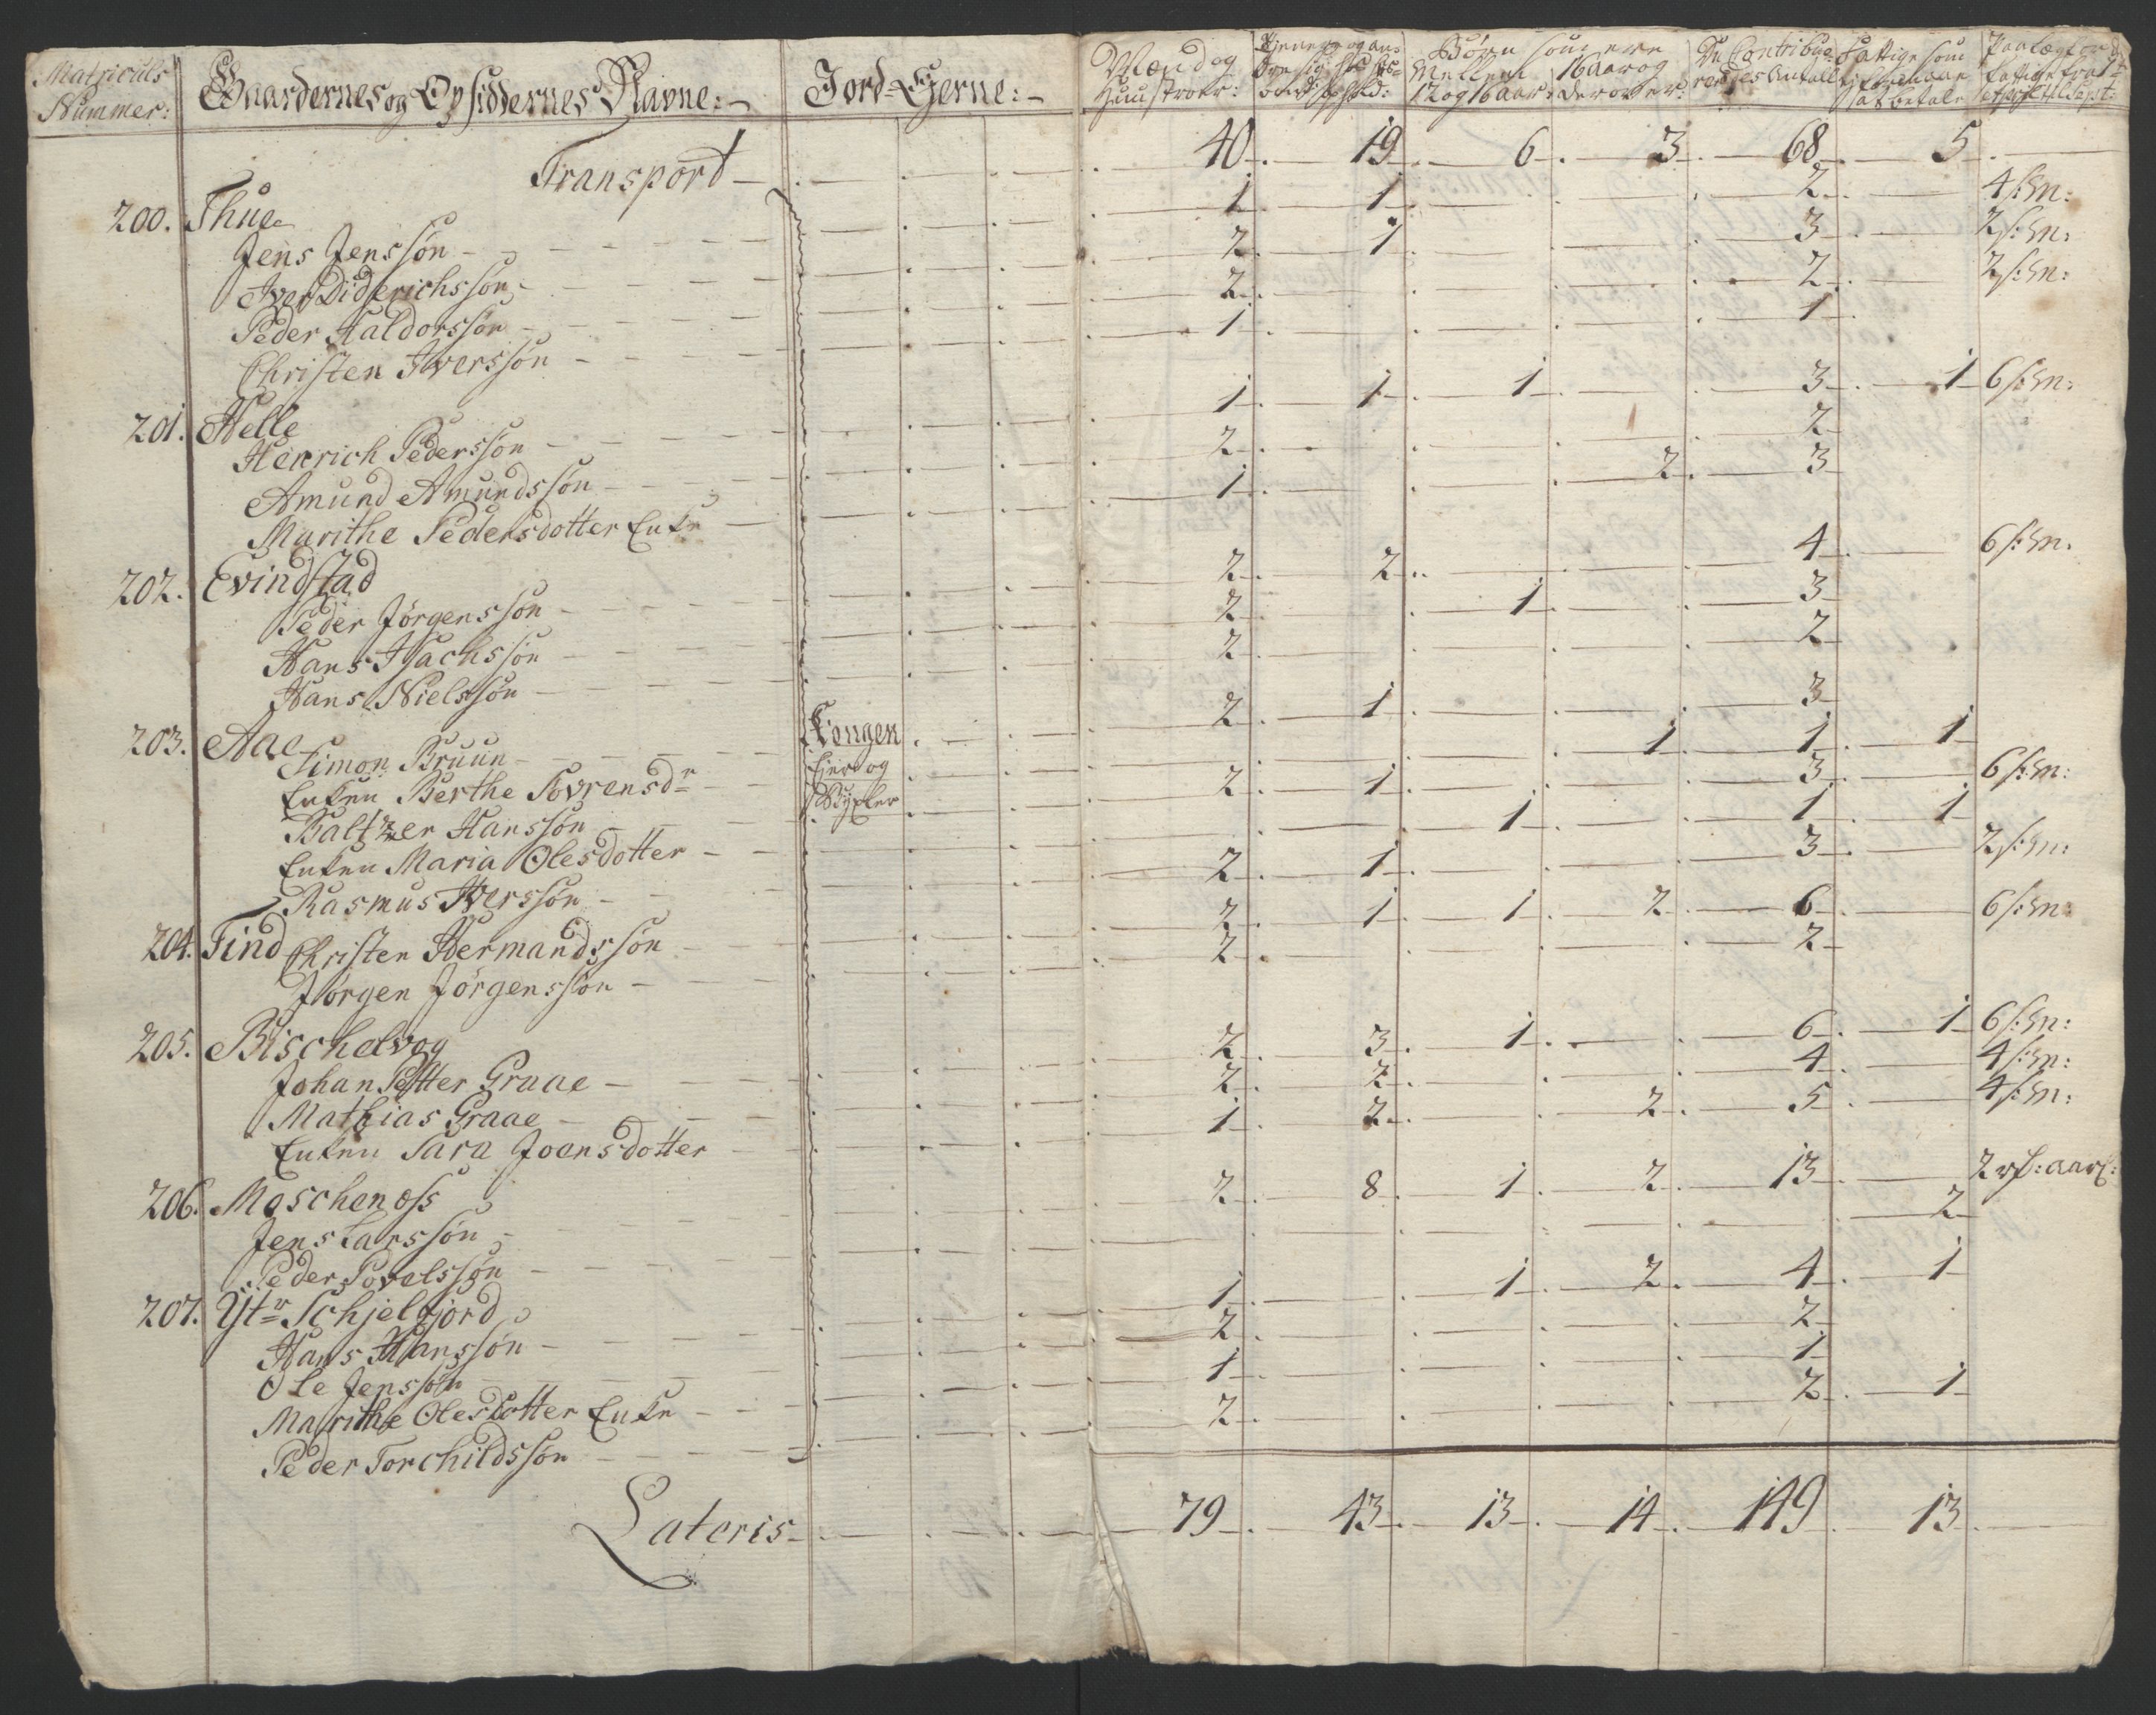 Matriculs Nummer: Gaardernes og Opsiddernes Navne: Jord-Ejerne: Mænd og Hustroer: Tjenere og an- Børn som ere Mellem 12 og 16 aar: 16 aar og derover: De Contribue- rendes Antall Fattige som ej kand betale Paalæg for
Transport 40 19 6 3 68 5
200. Thue
Jens Jenssøn 1 1 2 4 s: m:
Iver Diderichssøn 2 1 3 2 s: m:
Peder Haldorssøn 2 2 2 s: m:
Christen Iverssøn 1 1
201. Helle
Henrich Pederssøn 1 1 1 3 1 6 s: m:
Amund Amundssøn 2 2
Marithe Pedersdotter Enke 1 2 3
202. Evindstad
Peder Jörgenssøn 2 2 4 6 s: m:
Hans Isachssøn 2 1 3
Hans Nielssøn 2 2
203. Aae
Simon Bruun Kongen 2 1 3
Enken Berthe Sovrensdr Ejer og 1 1 1
Baltzer Hanssøn Bÿxler 2 1 3 6 s: m:
Enken Maria Olesdotter 1 1 1
Rasmus Iverssøn 2 1 3 2 s: m:
204. Tind Christen Hermandssøn 2 1 1 2 6 6 s: m:
Jörgen Jörgenssøn 2 2
205. Bischelvog
Johan Petter Graae 2 3 1 6 1 6 s: m:
Mathias Graae 2 2 4 4 s: m:
Enken Sara Joensdotter 1 2 2 5 4 s: m:
206. Moschenøss
Jens Larssøn 2 8 1 2 13 2 rf: aarl:
Peder Povelssøn 2
207. Ÿtr Schjelfjord
Hans Hanssøn 1 1 2 4 1
Ole Jenssøn 2 2
Marithe Olesdotter Enke 1 1
Peder Torchildssøn 2 2 1
Lateris 79 43 13 14 149 13